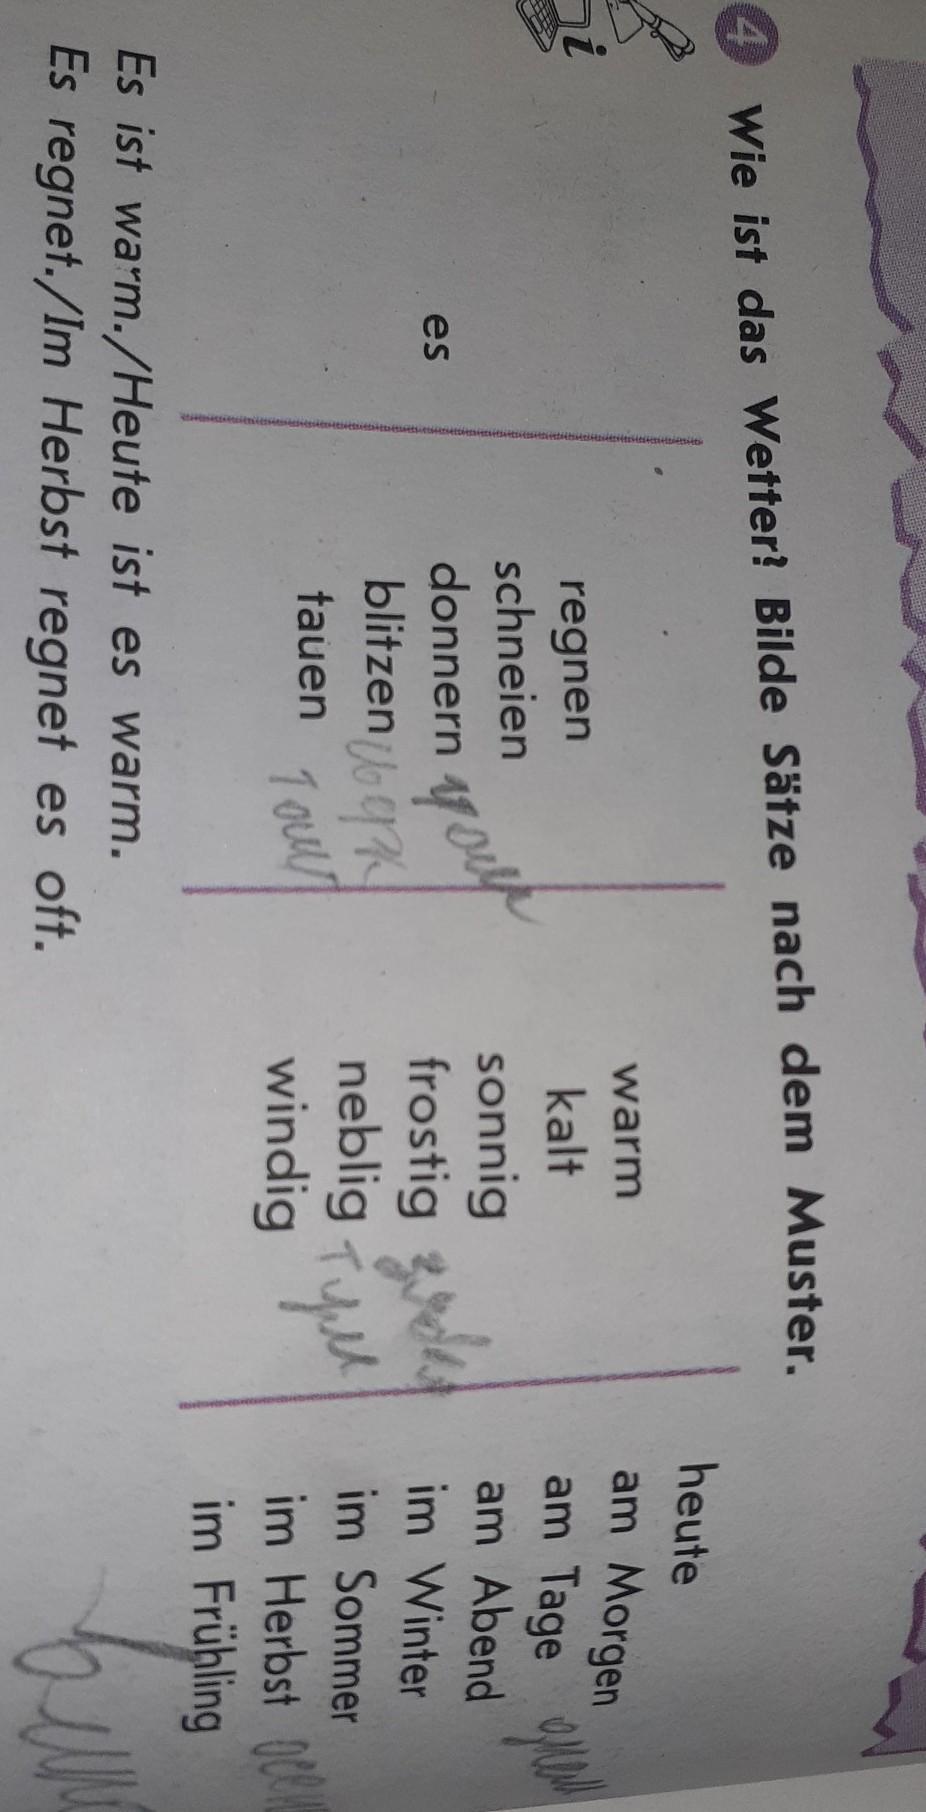 4 Wie ist das Wetter? Bilde Sätze nach dem Muster.
i
es
regnen
schneien
donnern
blitzen
tauen
warm
kalt
sonnig
frostig
neblig
windig
heute
am Morgen
am Tage
am Abend
im Winter
im Sommer
im Herbst
im Frühling
Es ist warm./Heute ist es warm.
Es regnet./Im Herbst regnet es oft.